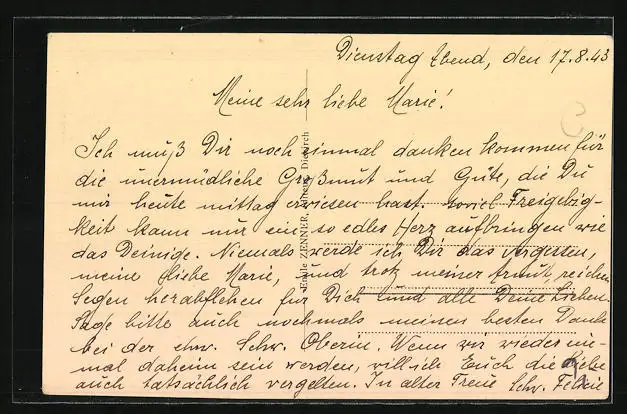 Dienstag Abend, den 17.8.43
Meine sehr liebe Marie!
Ich muß Dir noch einmal danken kommen für
die unermüdliche Großmut und Güte, die Du
mir heute mittag erwiesen hast. Soviel Freigebig-
keit kann nur ein so edles Herz aufbringen wie
das Deinige. Niemals werde ich Dir das vergessen,
meine liebe Marie, und trotz meiner Armut, reichen
Segen herabflehen für Dich und alle Deine Lieben.
Sage bitte auch nochmals meinen besten Dank
bei der ehrw. Schw. Oberin. Wenn wir wieder ein-
mal daheim sein werden, will ich Euch die Liebe
auch tatsächlich vergelten. In alter Treue Schw.
Emile ZENNER, Diekirch